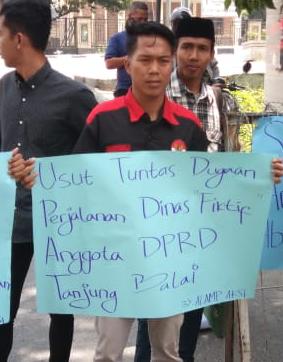 Usut Tuntas Dugaan
Perjalanan Dinas "Fiktif"
Anggota DPRD
Tanjung Balai